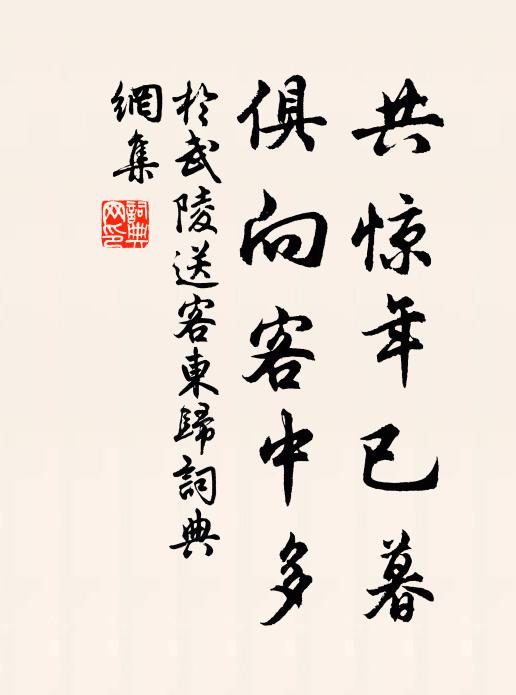 共惊年已暮
俱向客中多
於武陵送客東歸詞典
網集
詞典網印